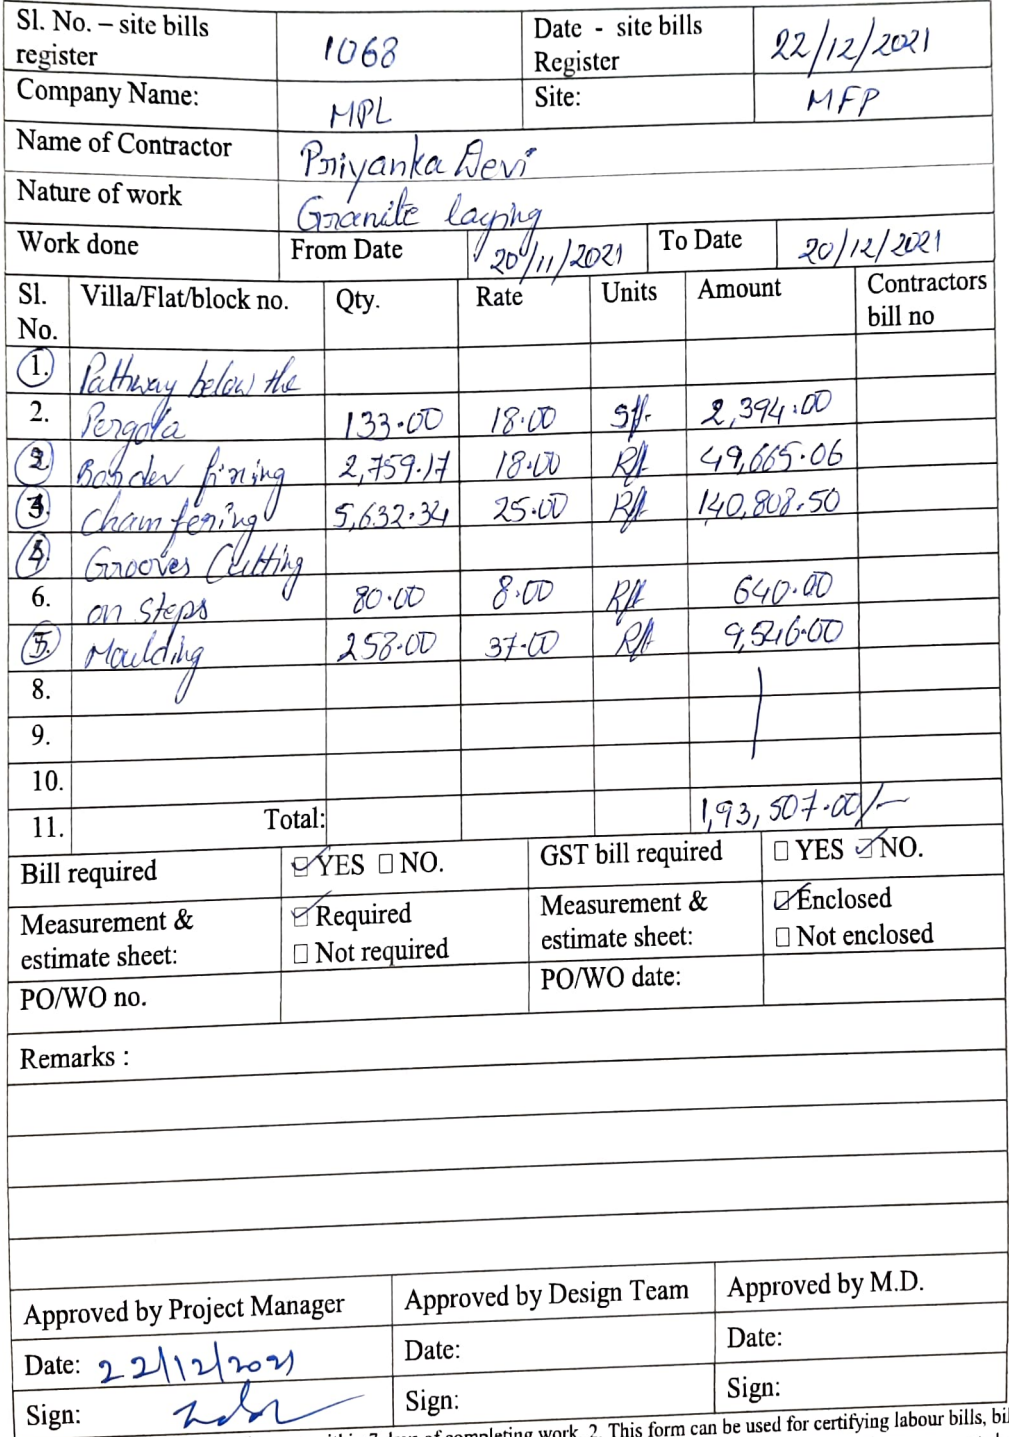 Sl. No. – site bills register 1068 Date - site bills Register 22/12/2021
Company Name: MPL Site: MFP
Name of Contractor Priyanka Devi
Nature of work Granite laying
Work done From Date 20/11/2021 To Date 20/12/2021
Sl. No. Villa/Flat/block no. Qty. Rate Units Amount Contractors bill no
1. Pathway below the
2. Pergola 133.00 18.00 Sft. 2,394.00
2. Border fixing 2,759.17 18.00 Rft 49,665.06
3. chamfering 5,632.34 25.00 Rft 140,808.50
4. Grooves Cutting
6. on steps 80.00 8.00 Rft 640.00
5. Moulding 258.00 37.00 Rft 9,546.00
8.
9.
10.
11. Total: 1,93,507.00/-
Bill required ☑ YES ☐ NO. GST bill required ☐ YES ☑ NO.
Measurement & estimate sheet: ☑ Required ☐ Not required Measurement & estimate sheet: ☑ Enclosed ☐ Not enclosed
PO/WO no. PO/WO date:
Remarks :
Approved by Project Manager Approved by Design Team Approved by M.D.
Date: 22/12/2021 Date: Date:
Sign: Sign: Sign:
7 days of completing work. 2. This form can be used for certifying labour bills,